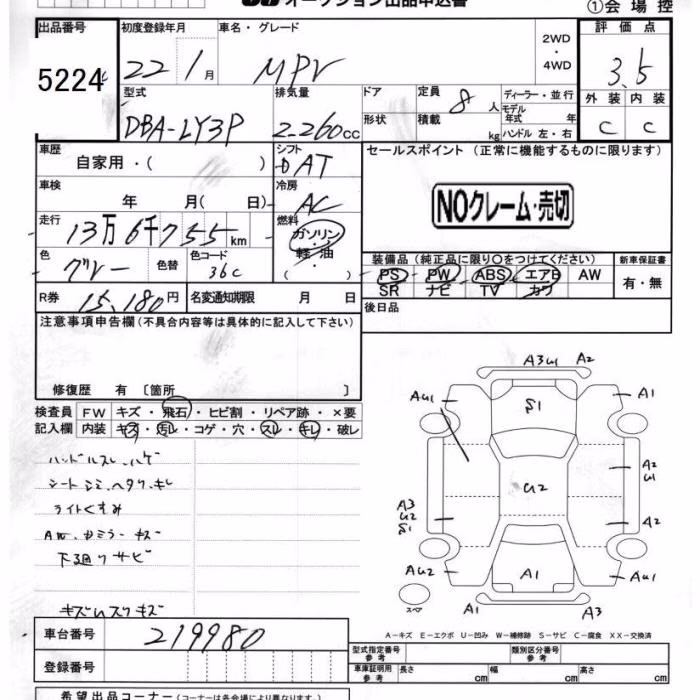 オークション出品申込書
①会場控
出品番号
5224
初度登録年月
22 / 1 月
車名・グレード
MPV
2WD
・
4WD
評価点
3.5
外装 内装
C C
型式
DBA-LY3P
排気量
2.260 cc
ドア
形状
定員
8 人
積載
kg
ディーラー・並行
モデル
年式 年
ハンドル 左・右
車歴
自家用・( )
シフト
DAT
セールスポイント (正常に機能するものに限ります)
NOクレーム・売切
車検
年 月( 日)
冷房
AC
走行
13万6千755 km
燃料
ガソリン
・
軽油
色
グレー
色替
色コード
36C
装備品(純正品に限り〇をつけてください)
PS PW ABS エアB AW
SR ナビ TV カワ
新車保証書
有・無
R券
15,180円
名変通知期限 月 日
後日品
注意事項申告欄(不具合内容等は具体的に記入して下さい)
修復歴 有 〔箇所 〕
検査員 FW キズ・飛石・ヒビ割・リペア跡・×要
記入欄 内装 キズ・汚レ・コゲ・穴・スレ・キレ・破レ
ハンドルスレ・ハゲ
シートシミ・ヘタリ・キレ
ライトくすみ
AW・ドミラーキズ
下廻りサビ
A3U1 A2
AU1
A1
S1
A2
U1
U2
A3
U2
S1
A2
AU2
A1
AU1
スペア
A1
A3
A−キズ E−エクボ U−凹み W−補修跡 S−サビ C−腐食 XX−交換済
車台番号
219980
登録番号
型式指定番号
参考
類別区分番号
参考
車庫証明用
参考
長さ cm
幅 cm
高さ cm
希望出品コーナー(コーナーは各会場により異なります。)